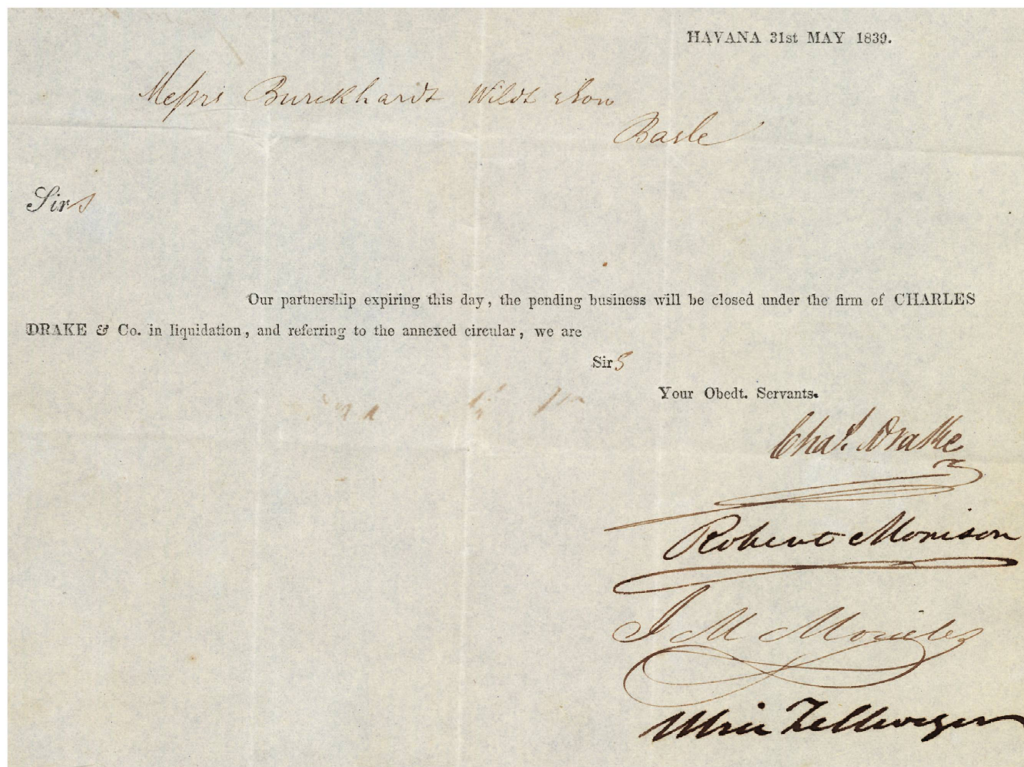 HAVANA 31st MAY 1839.
Messrs Burckhardt Wildt & Son
Basle
Sirs
Our partnership expiring this day, the pending business will be closed under the firm of CHARLES
DRAKE & Co. in liquidation, and referring to the annexed circular, we are
Sirs
Your Obedt. Servants.
Chas. Drake
Robert Morrison
J M Morales
Ulric Zellweger